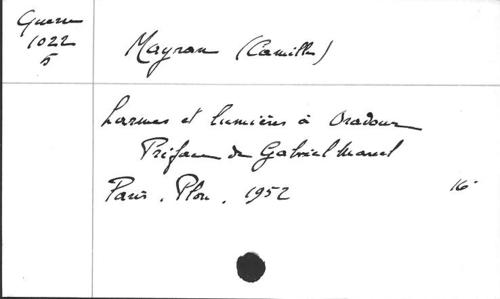 Guerre
1022
5
Mayran (Camille)
Larmes et lumières à Oradour
Préface de Gabriel Marcel
Paris, Plon, 1952
16°